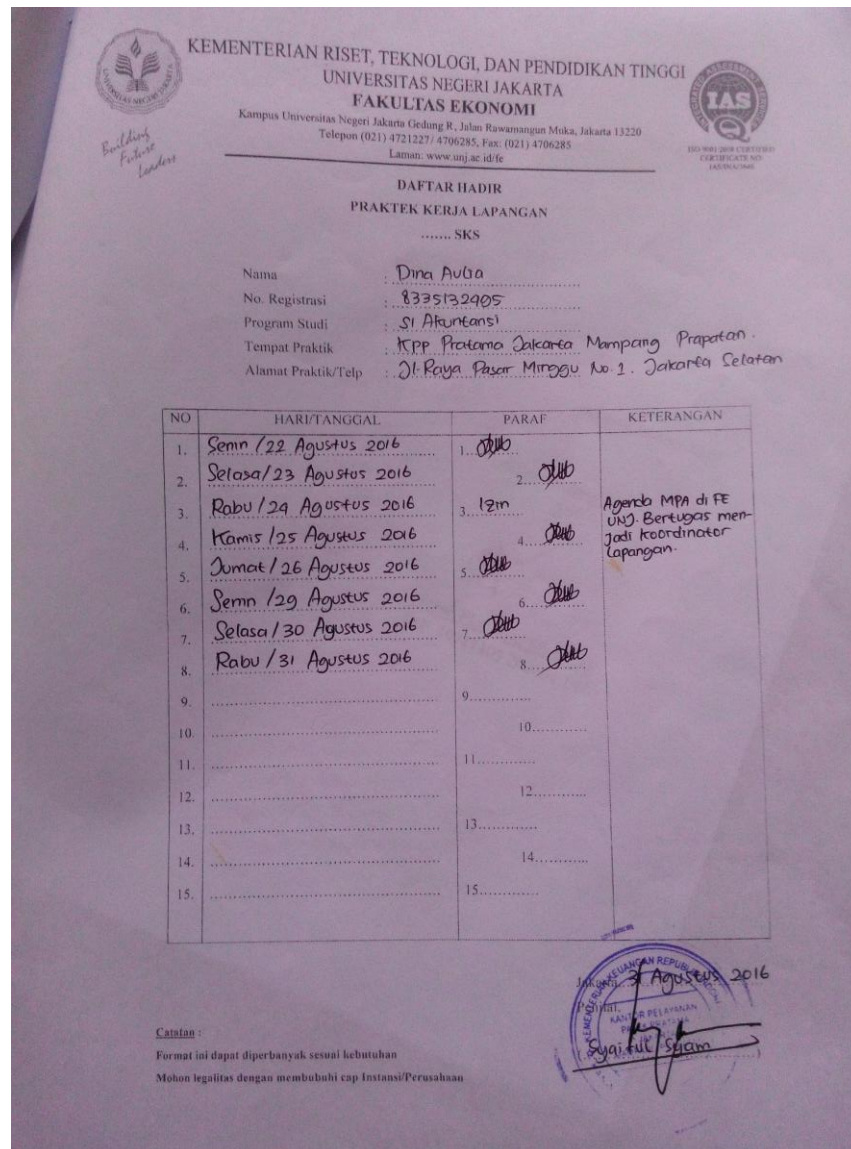 KEMENTERIAN RISET, TEKNOLOGI, DAN PENDIDIKAN TINGGI
UNIVERSITAS NEGERI JAKARTA
FAKULTAS EKONOMI
Kampus Universitas Negeri Jakarta Gedung R, Jalan Rawamangun Muka, Jakarta 13220
Telepon (021) 4721227/ 4706285, Fax: (021) 4706285
Laman: www.unj.ac.id/fe
UNIVERSITAS NEGERI JAKARTA
Building
Future
Leaders
IAS
ISO 9001:2008 CERTIFIED
CERTIFICATE NO:
DAFTAR HADIR
PRAKTEK KERJA LAPANGAN
....... SKS
Nama : Dina Aulia
No. Registrasi : 8335132905
Program Studi : S1 Akuntansi
Tempat Praktik : KPP Pratama Jakarta Mampang Prapatan.
Alamat Praktik/Telp : Jl. Raya Pasar Minggu No. 1. Jakarta Selatan
NO HARI/TANGGAL PARAF KETERANGAN
1. Senin /22 Agustus 2016 1.
2. Selasa/23 Agustus 2016 2.
3. Rabu /24 Agustus 2016 3. Izin Agenda MPA di FE
UNJ. Bertugas men-
4. Kamis /25 Agustus 2016 4. jadi koordinator
lapangan.
5. Jumat /26 Agustus 2016 5.
6. Senin /29 Agustus 2016 6.
7. Selasa /30 Agustus 2016 7.
8. Rabu /31 Agustus 2016 8.
9. 9.............
10. 10............
11. 11.............
12. 12............
13. 13.............
14. 14............
15. 15.............
Jakarta, 31 Agustus 2016
Penilai,
KEMENTERIAN KEUANGAN REPUBLIK INDONESIA
KANTOR PELAYANAN
(Syaiful Syam)
Catatan :
Format ini dapat diperbanyak sesuai kebutuhan
Mohon legalitas dengan membubuhi cap Instansi/Perusahaan